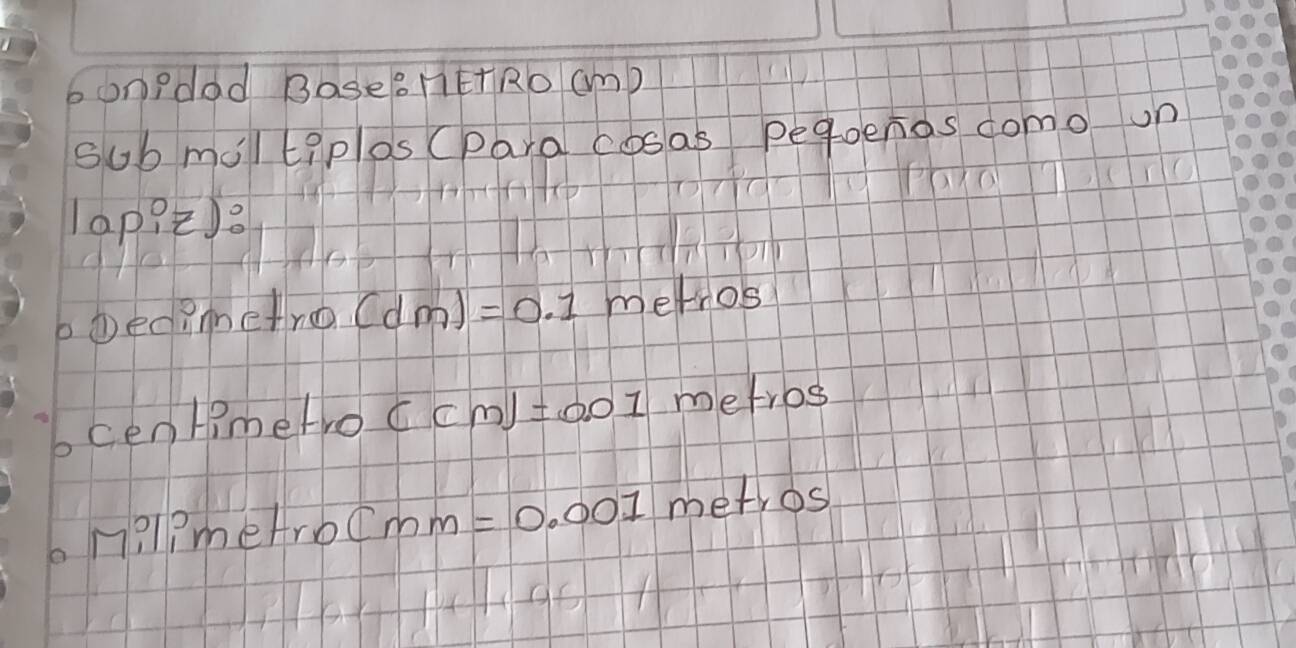 ° unidad Base: METRO (m)
sub múltiplos (para cosas pequeñas como un
lapiz):
° Decimetro (dm) = 0.1 metros
° centimetro (cm) = 0.01 metros
° Milimetro (mm = 0.001 metros